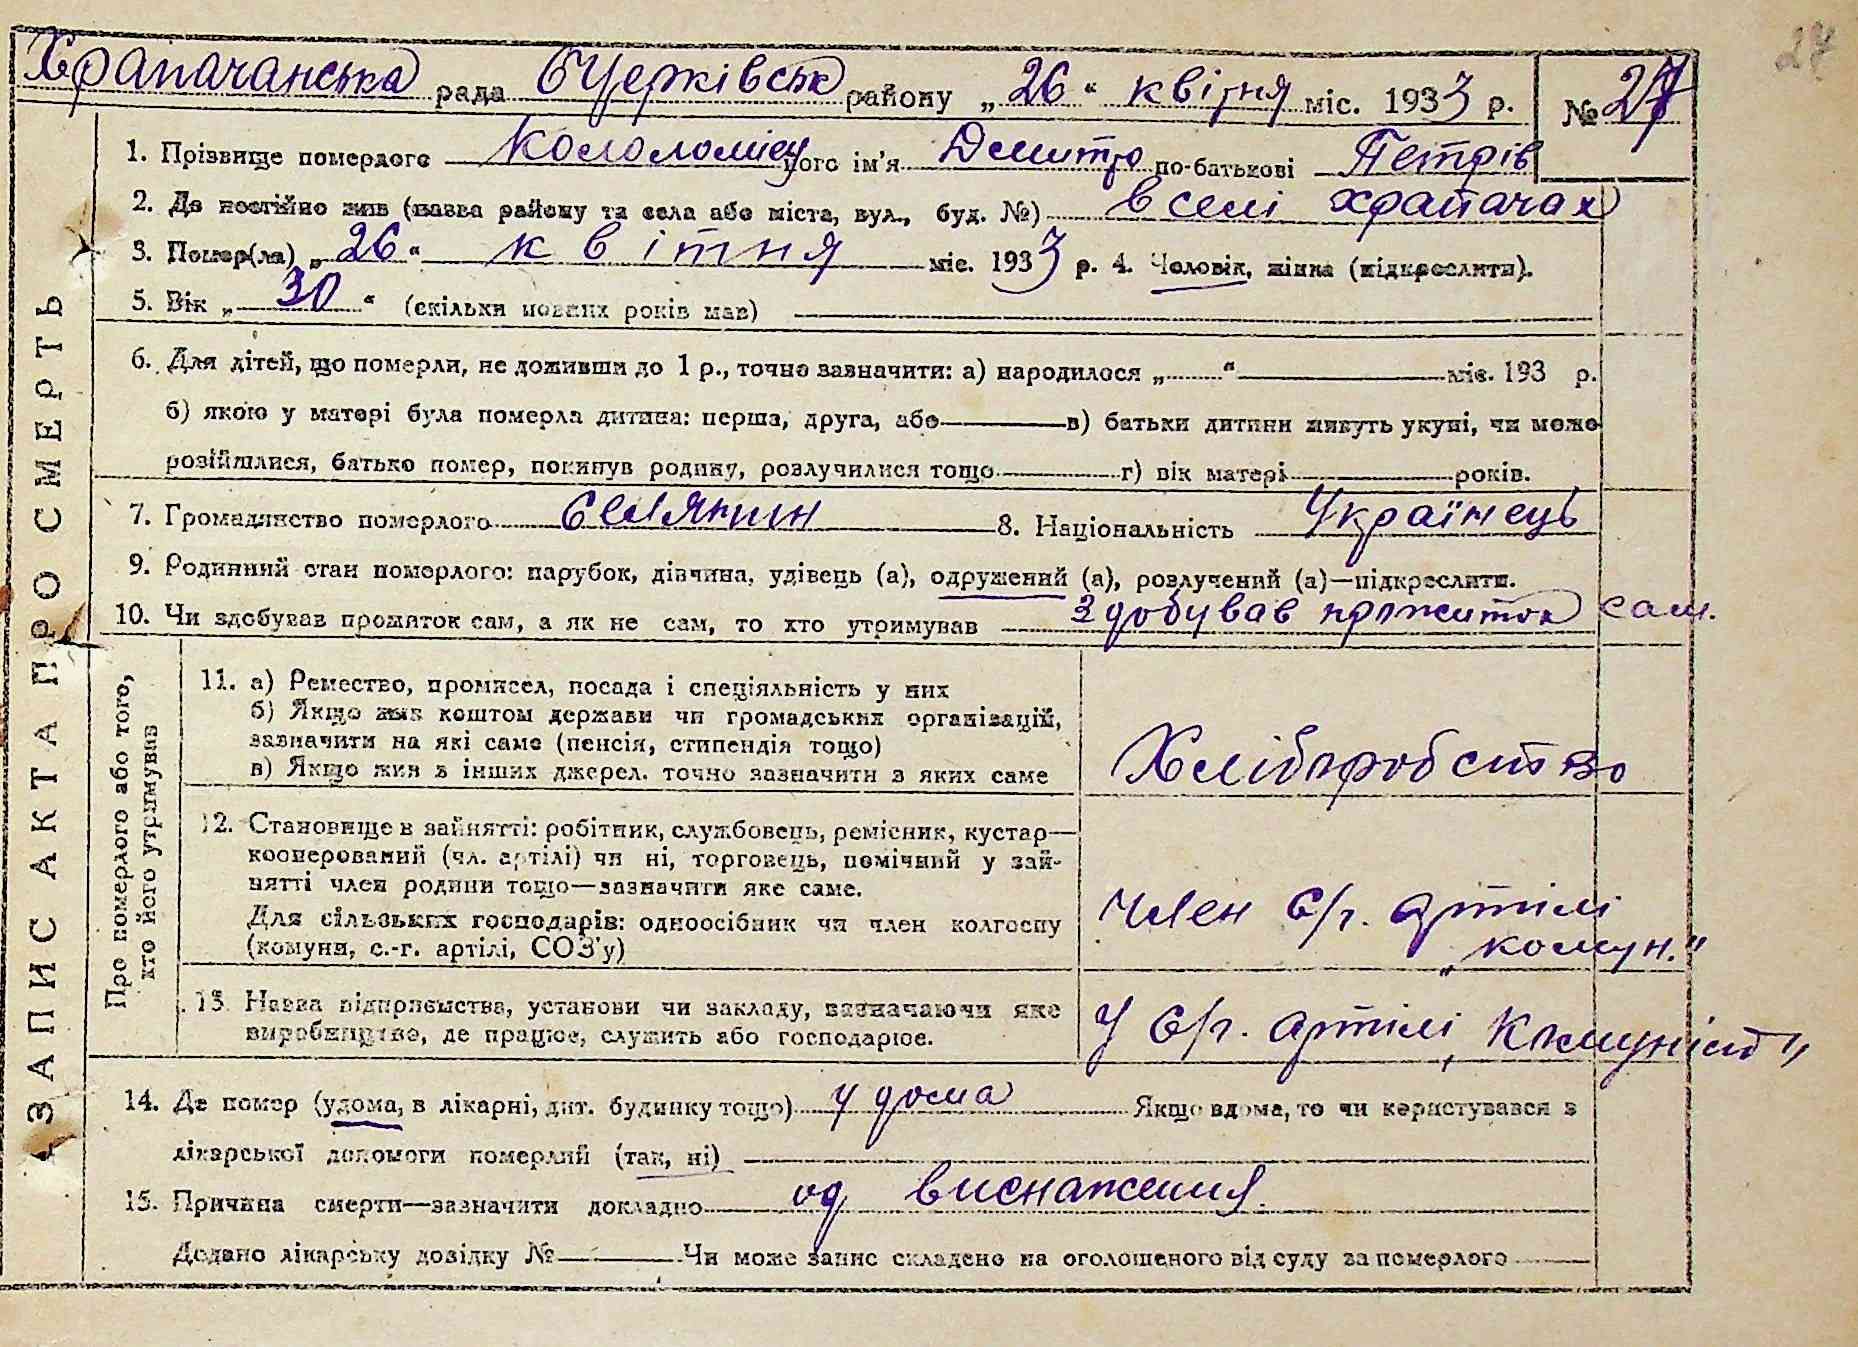 27
Храпачанська рада БЦерківськ району „26“ квітня міс. 1933 р. № 27
1. Прізвище померлого Кололомієц його ім'я Дмитро по-батькові Петрів
2. Де постійно жив (назва району та села або міста, вул., буд. №) в селі храпачах
3. Помер(ла) „26“ квітня міс. 1933 р. 4. Чоловік, жінка (підкреслити).
5. Вік „30“ (скільки повних років мав)
6. Для дітей, що померли, не доживши до 1 р., точно зазначити: а) народилося „ “ міс. 193 р.
б) якою у матері була померла дитина: перша, друга, або в) батьки дитини живуть укупі, чи може
розійшлися, батько помер, покинув родину, розлучилися тощо г) вік матері років.
7. Громадянство померлого селянин 8. Національність Українець
9. Родинний стан померлого: парубок, дівчина, удівець (а), одружений (а), розлучений (а)—підкреслити.
10. Чи здобував прожиток сам, а як не сам, то хто утримував здобував прожиток сам.
ЗАПИС АКТА ПРО СМЕРТЬ
Про померлого або того,
хто його утримував
11. а) Ремество, промисел, посада і спеціяльність у них
б) Якщо жив коштом держави чи громадських організацій,
зазначити на які саме (пенсія, стипендія тощо)
в) Якщо жив з інших джерел. точно зазначити з яких саме
Хліборобство
12. Становище в зайнятті: робітник, службовець, ремісник, кустар—
кооперований (чл. артілі) чи ні, торговець, помічний у зай-
нятті член родини тощо—зазначити яке саме.
Для сільських господарів: одноосібник чи член колгоспу
(комуни, с.-г. артілі, СОЗ'у)
Член с/г. артілі
„комун."
13. Назва підприємства, установи чи закладу, зазначаючи яке
виробництво, де працює, служить або господарює.
У с/г. артілі „Комуніст"
14. Де помер (удома, в лікарні, дит. будинку тощо) у дома Якщо вдома, то чи користувався з
лікарської допомоги померлий (так, ні)
15. Причина смерти—зазначити докладно од виснаження.
Додано лікарську довідку № Чи може запис складено на оголошеного від суду за померлого